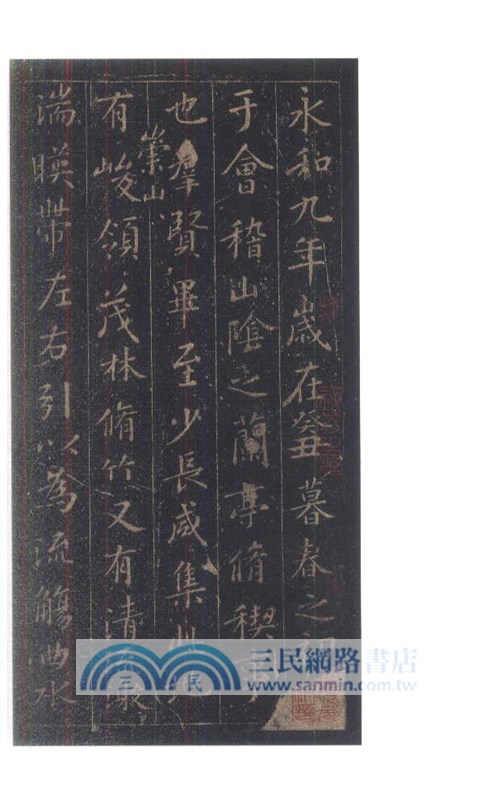 永和九年歲在癸丑暮春之初
于會稽山陰之蘭亭脩稧事
也羣賢畢至少長咸集此地
崇山
有峻領茂林脩竹又有清流激
湍暎帶左右引以為流觴曲水
三民網路書店
三民
www.sanmin.com.tw